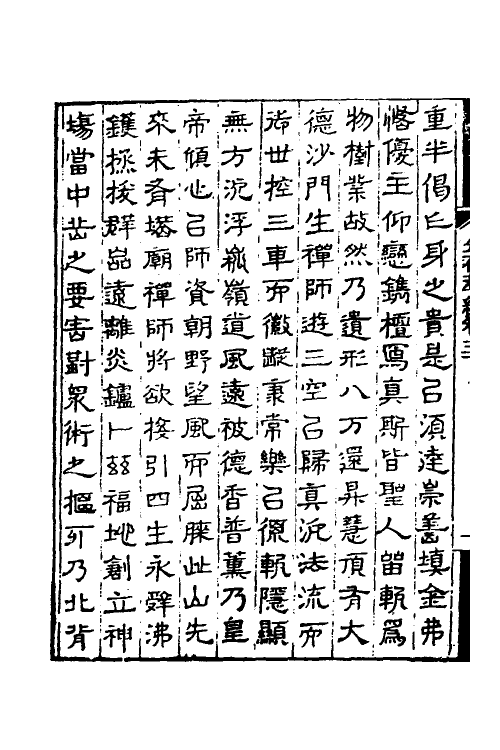 重半偈亡身之貴是㠯湏達崇善填金弗
悋優主仰戀鐫檀寫真斯皆聖人留軌為
物樹業故然乃遺形八万還昇慧頂有大
德沙門生禪師遊三空㠯歸真汎法流而
御世控三車而徽蹤秉常樂㠯範軌隱顯
無方沉浮嵩嶺道風遠被德香普薰乃皇
帝傾心㠯師資朝野望風而屈膝此山先
來未有塔廟禪師將欲接引四生永辭沸
鑊拯拔群品遠離炎鑪卜茲福地創立神
場當中岳之要害對眾術之摳𠛱乃北背